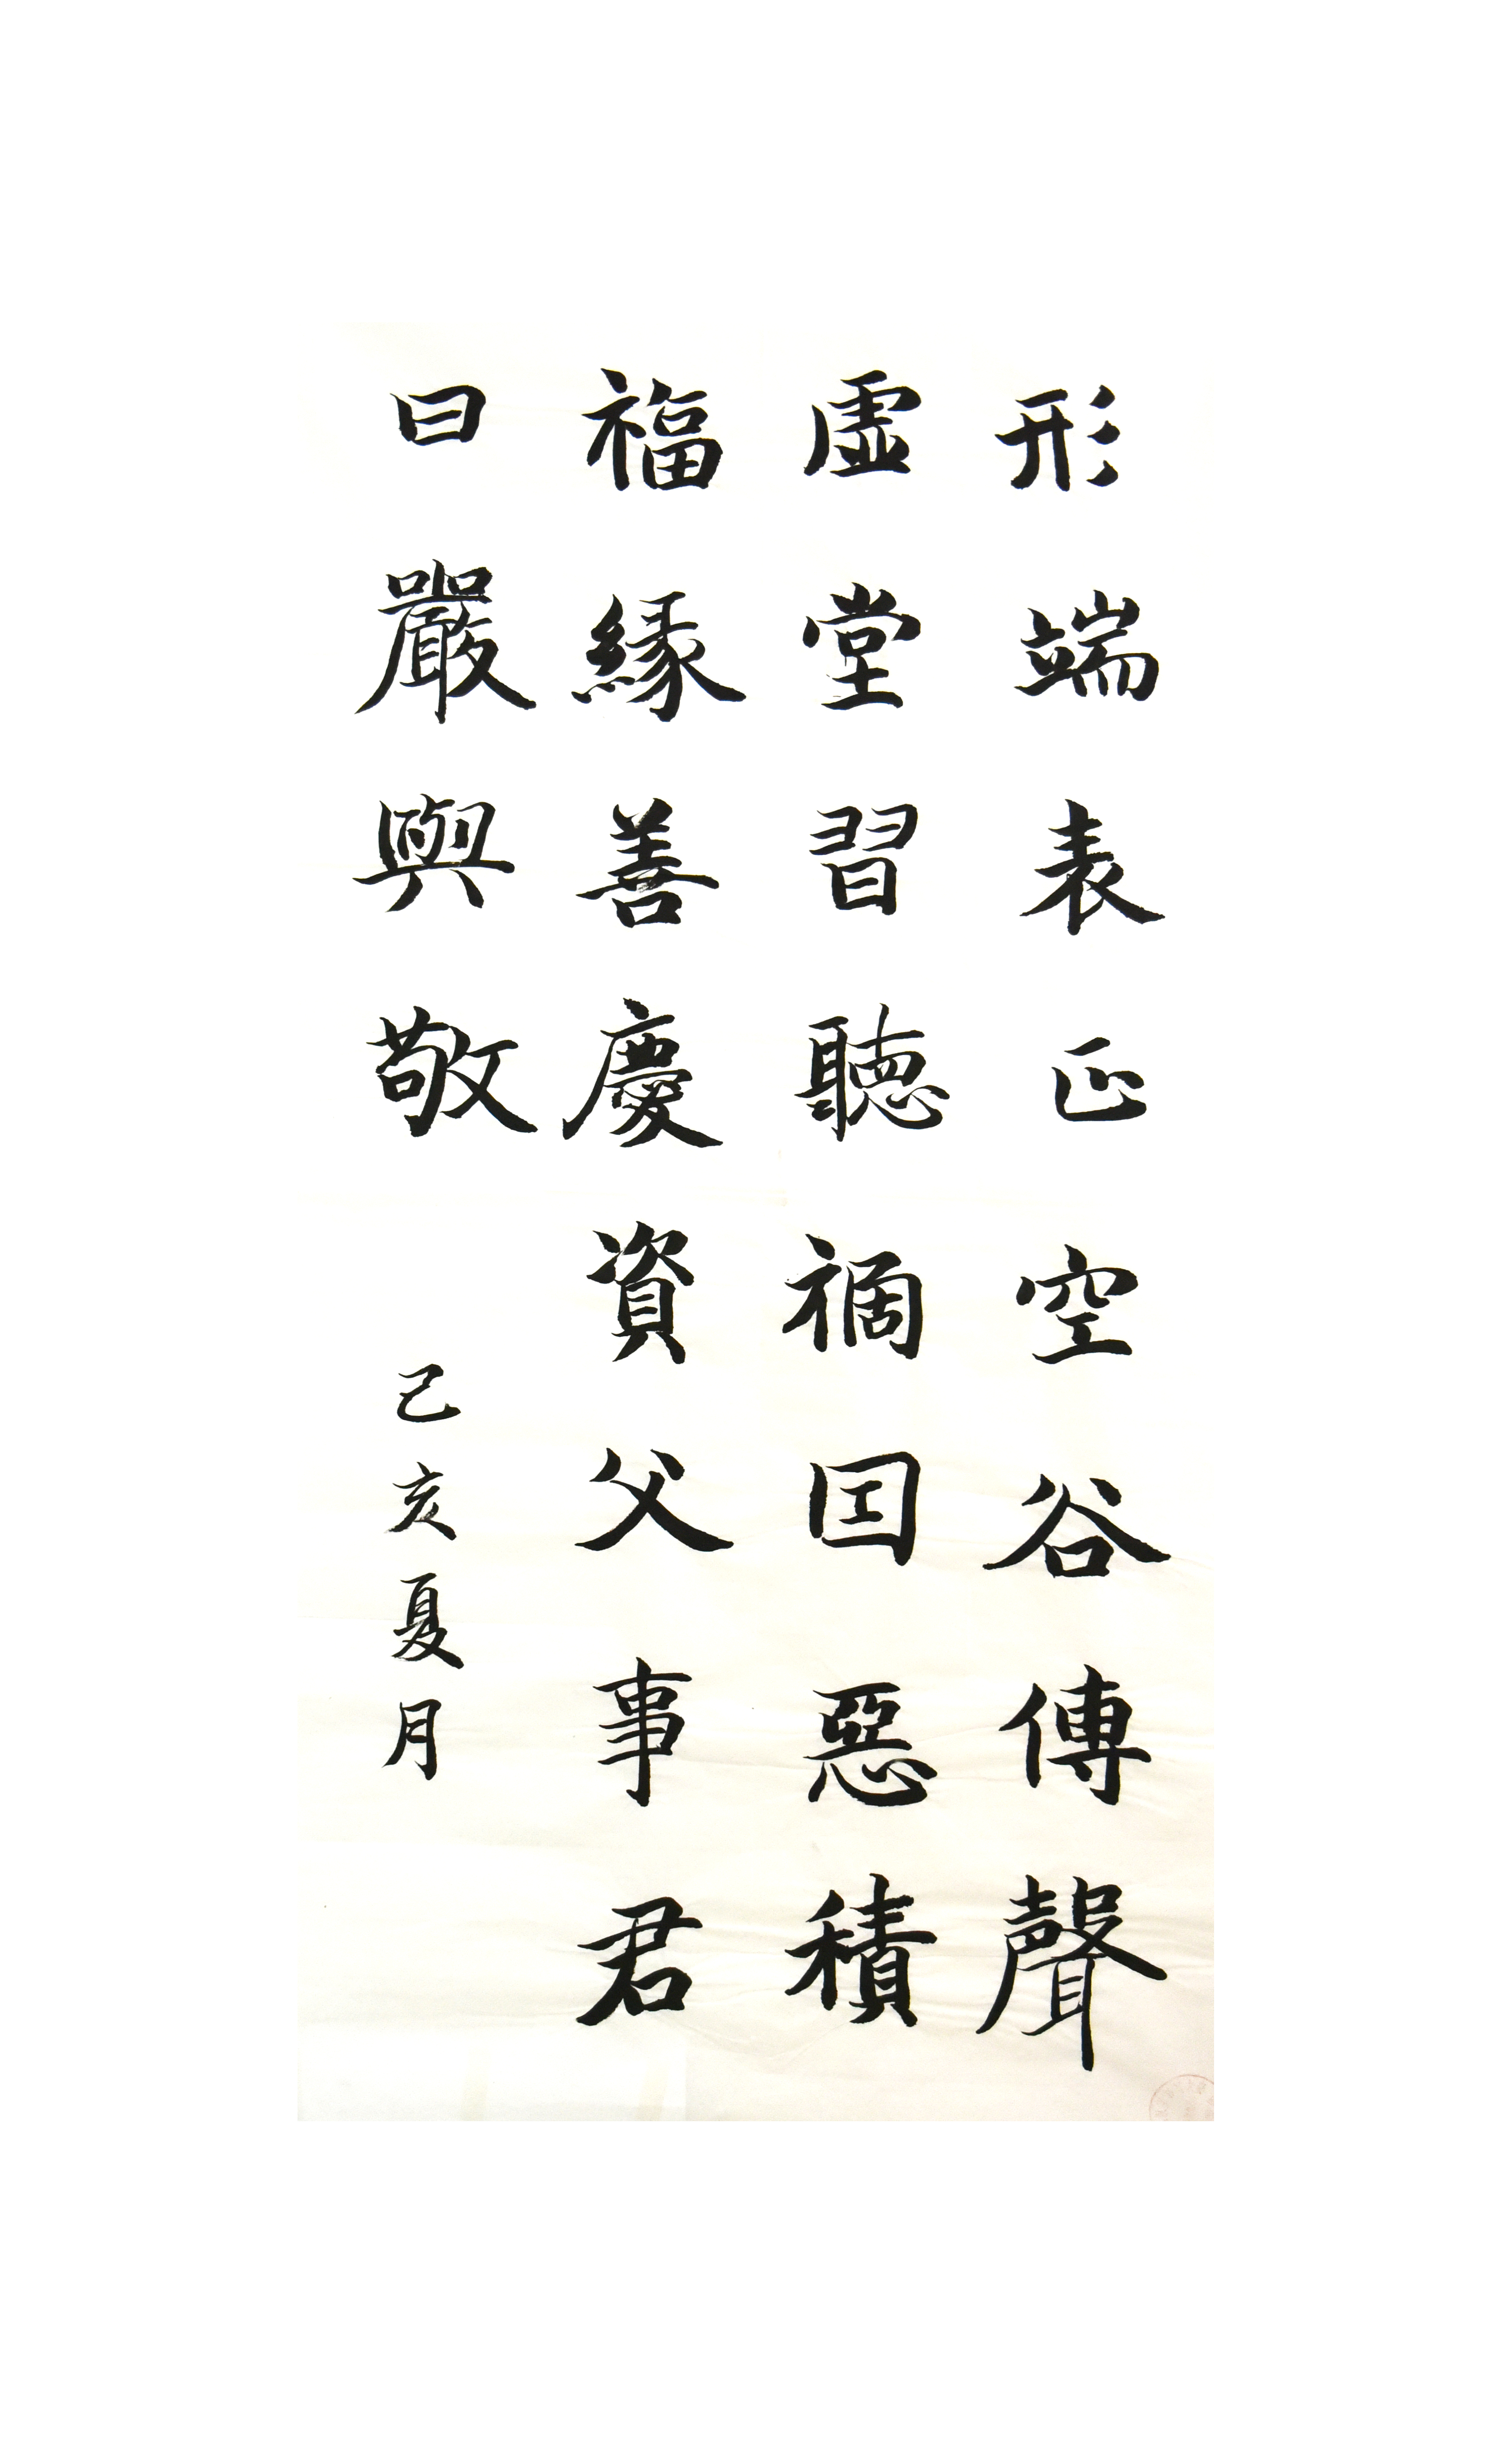 形端表正空谷傳聲
虛堂習聽禍因惡積
福緣善慶資父事君
曰嚴與敬
己亥夏月